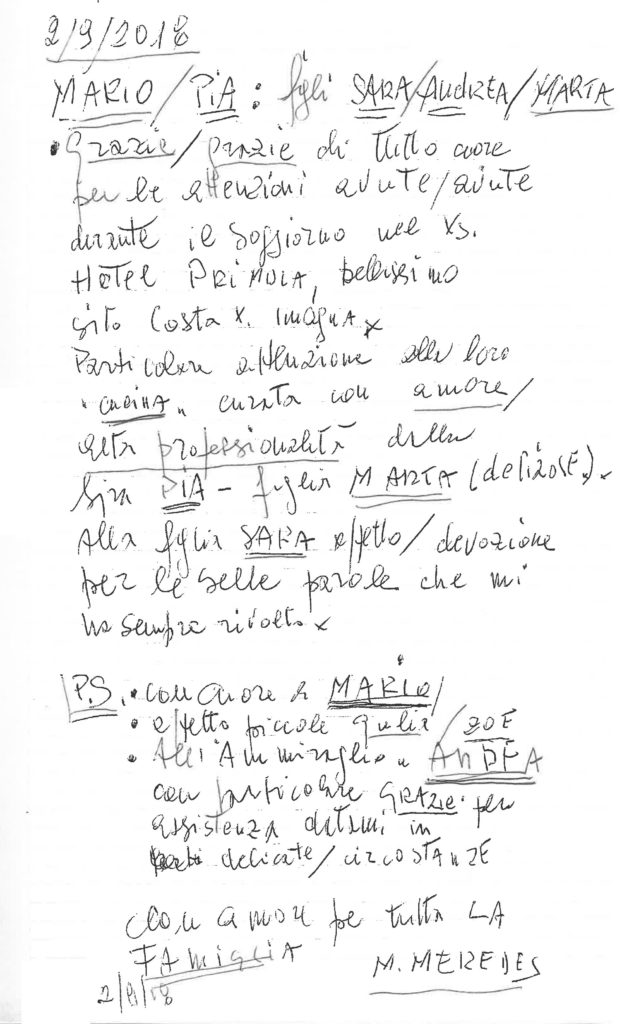 2/9/2018
MARIO/PIA: figli SARA/AUdREA/MARTA
• Grazie/grazie di tutto cuore
per le attenzioni avute/avute
durante il soggiorno nel Vs.
HOTEL PRIMULA, bellissimo
sito Costa V. IMAGNA
Particolare attenzione alla loro
"CUCINA" curata con amore/
alta professionalità della
Sig.ra PIA - figlia MARTA (deliziose).
Alla figlia SARA affetto/devozione
per le belle parole che mi
ha sempre rivolto
P.S. • con cuore a MARIO/
• affetto piccole Giulia/ZOE
• All'Ammiraglio ANDEA
con particolare GRAZIE per
assistenza datami in
delicate/circostanze
Con amore pe tutta LA
FAMIGLIA
M. MEREDES
2/9/18